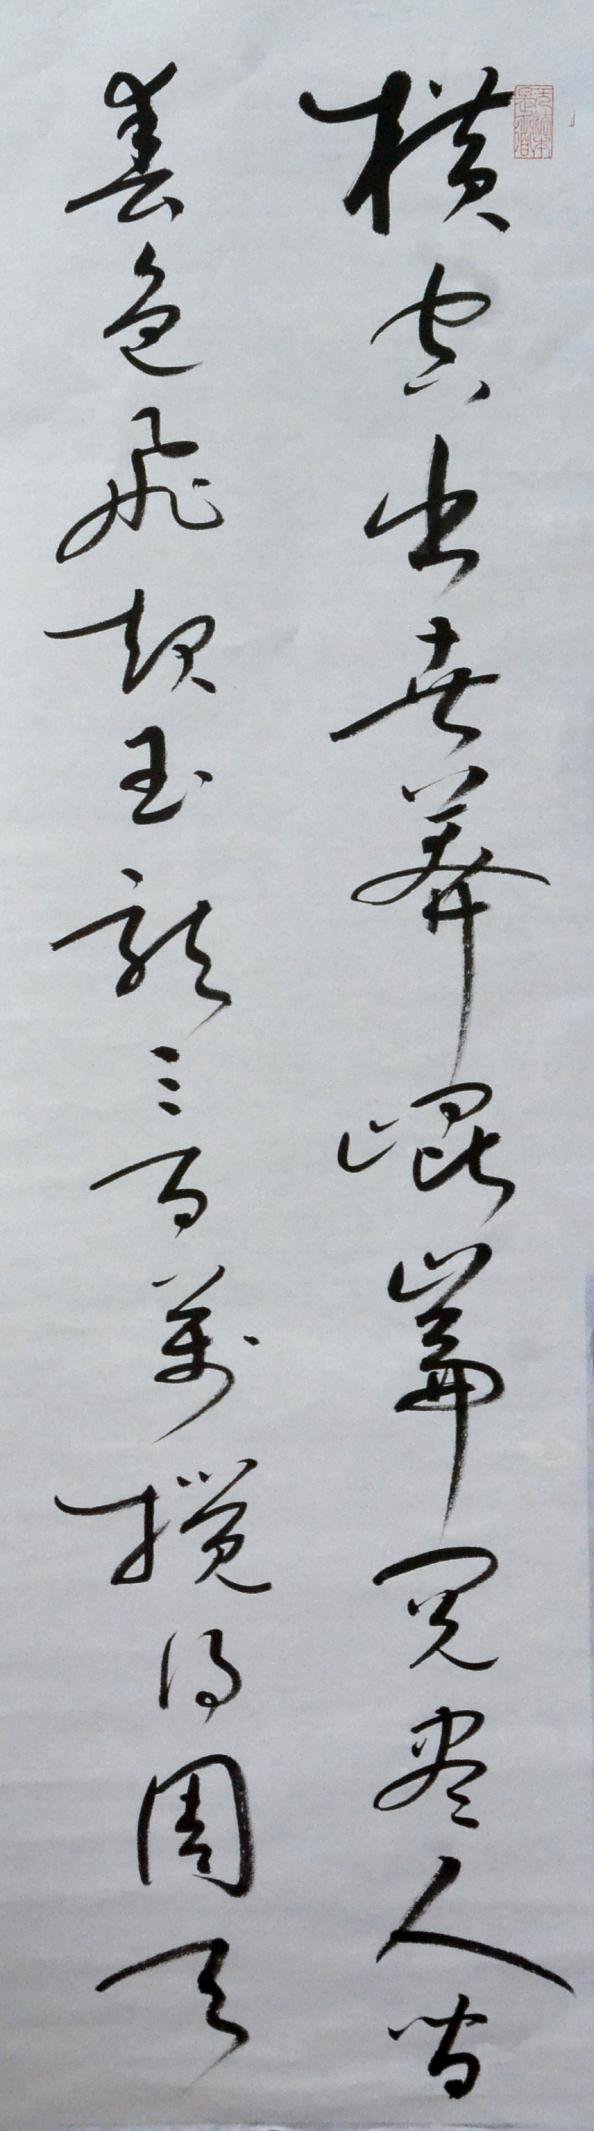 横空出世莽崐崙阅尽人间
春色飞起玉龙三百万搅得周天